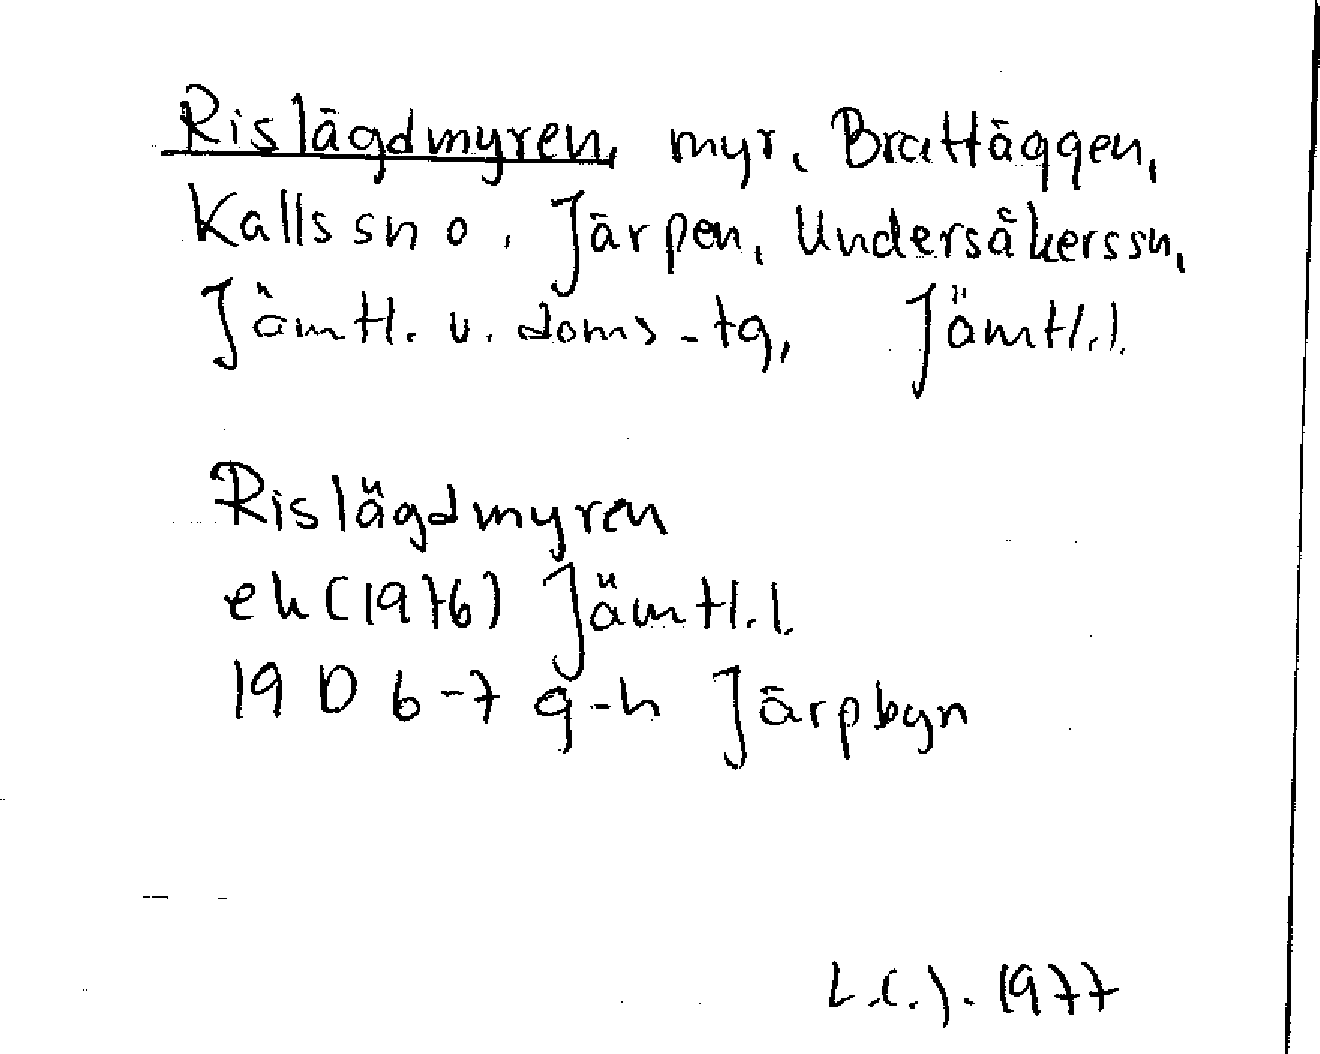 Rislägdmyren, myr, Brattäggen,
Kallssn o. Järpen, Undersåkerssn,
Jämtl. v. doms-tg, Jämtl.l.
Rislägdmyren
ek (1976) Jämtl.l.
19 D 6-7 g-h Järpbyn
L.C.J. 1977